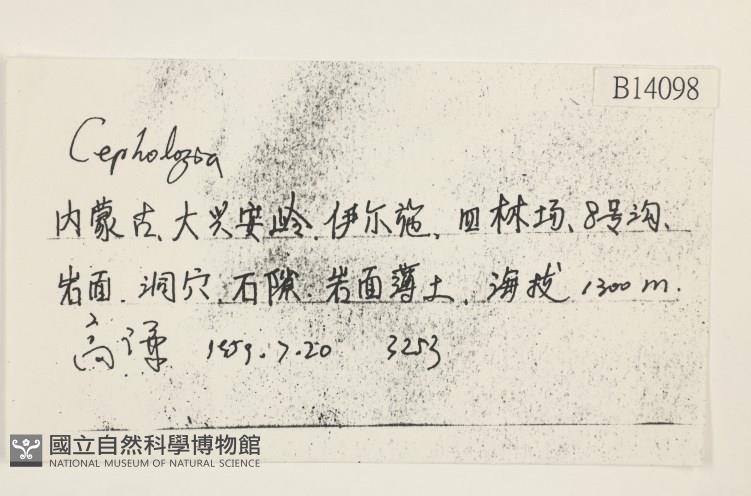 B14098
Cephalozia
内蒙古、大兴安岭、伊尔施、四林场、8号沟、
岩面、洞穴、石隙、岩面薄土、海拔1300m.
高谦 1959.7.20 3253
國立自然科學博物館
NATIONAL MUSEUM OF NATURAL SCIENCE